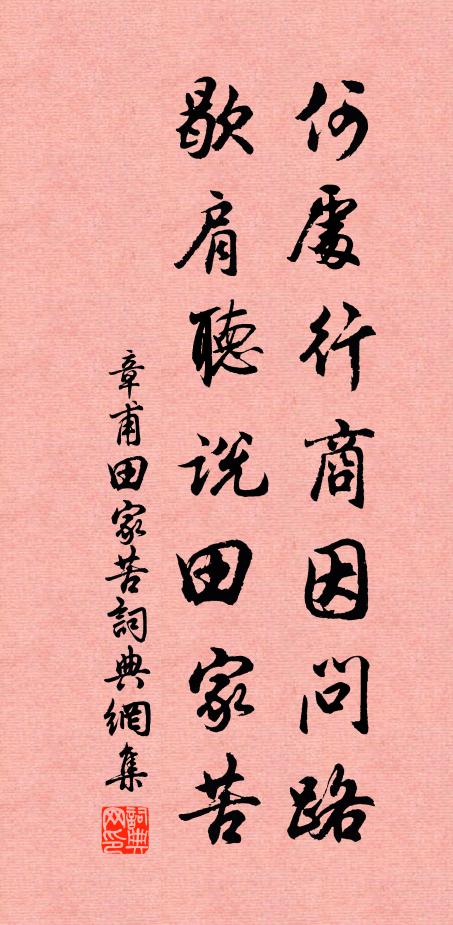 何處行商因問路
歇肩聽說田家苦
章甫田家苦詞典網集
詞典網印